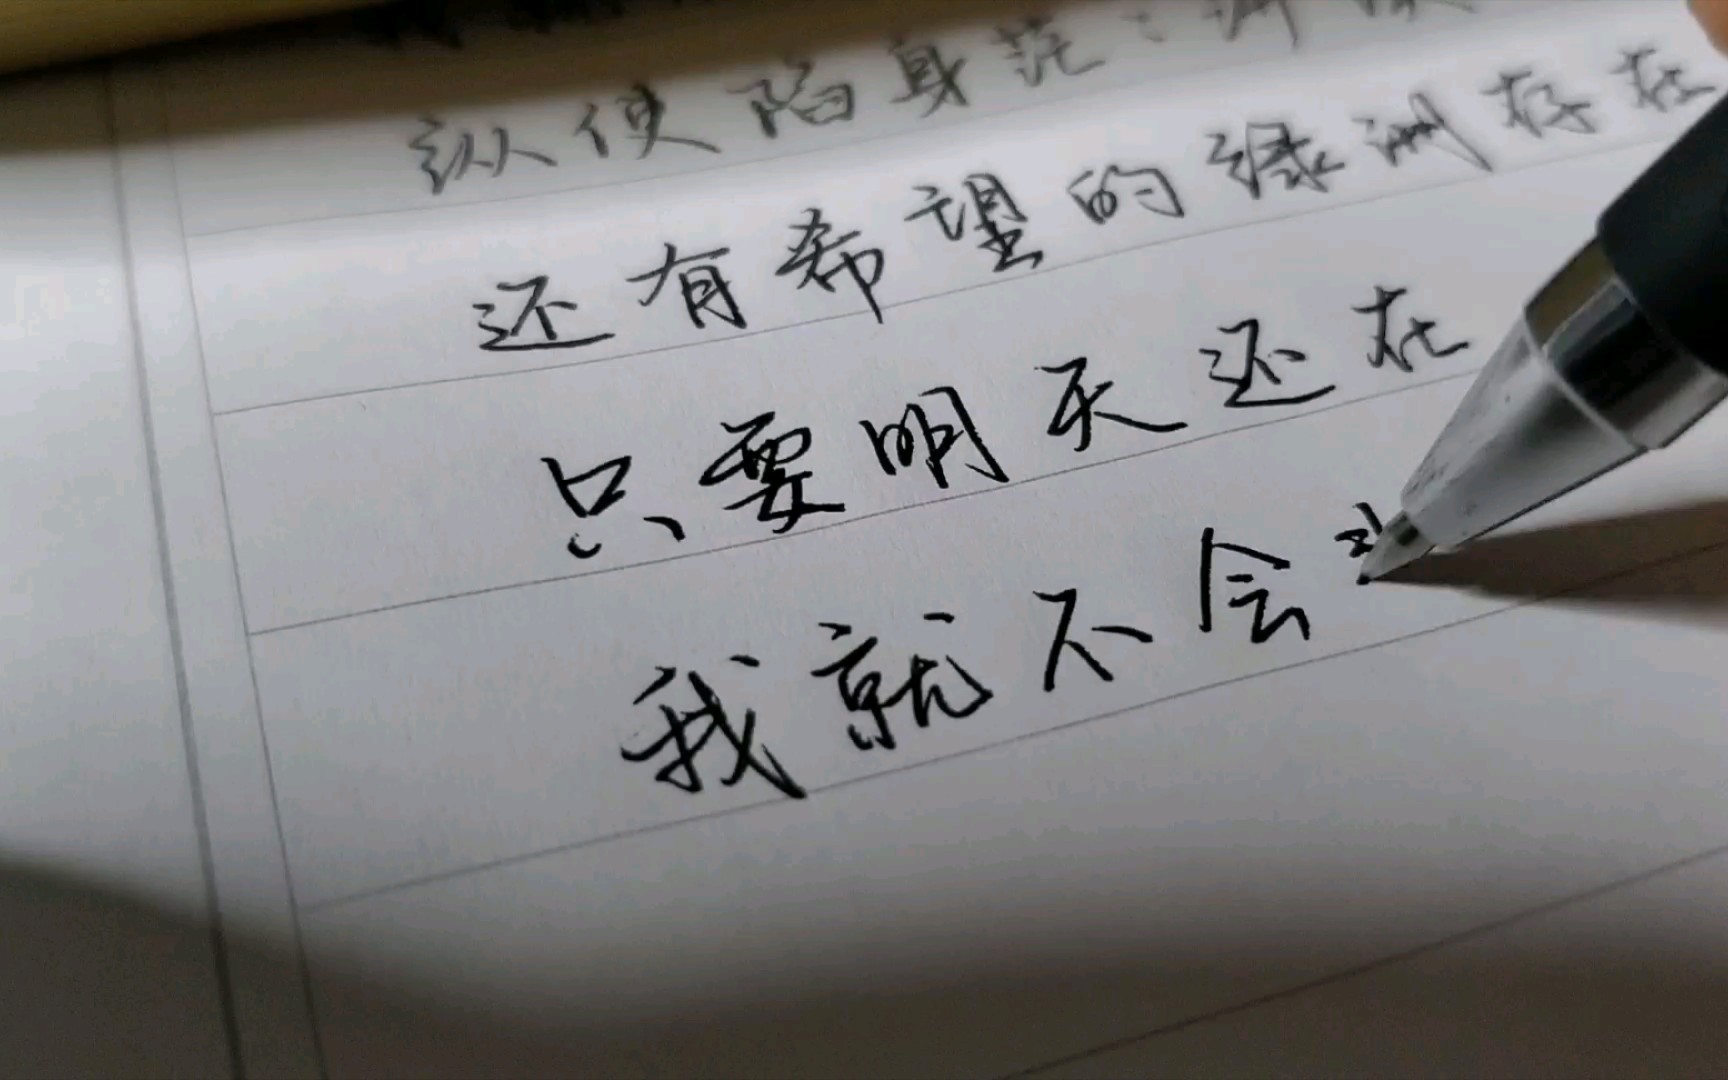 纵使陷身茫
还有希望的绿洲存在
只要明天还在
我就不会